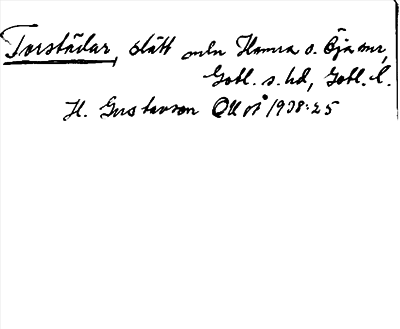 Torstädar, slätt mln Hamra o. Öja snr,
Gotl. s. hd, Gotl. l.
H. Gustavson 1938:25